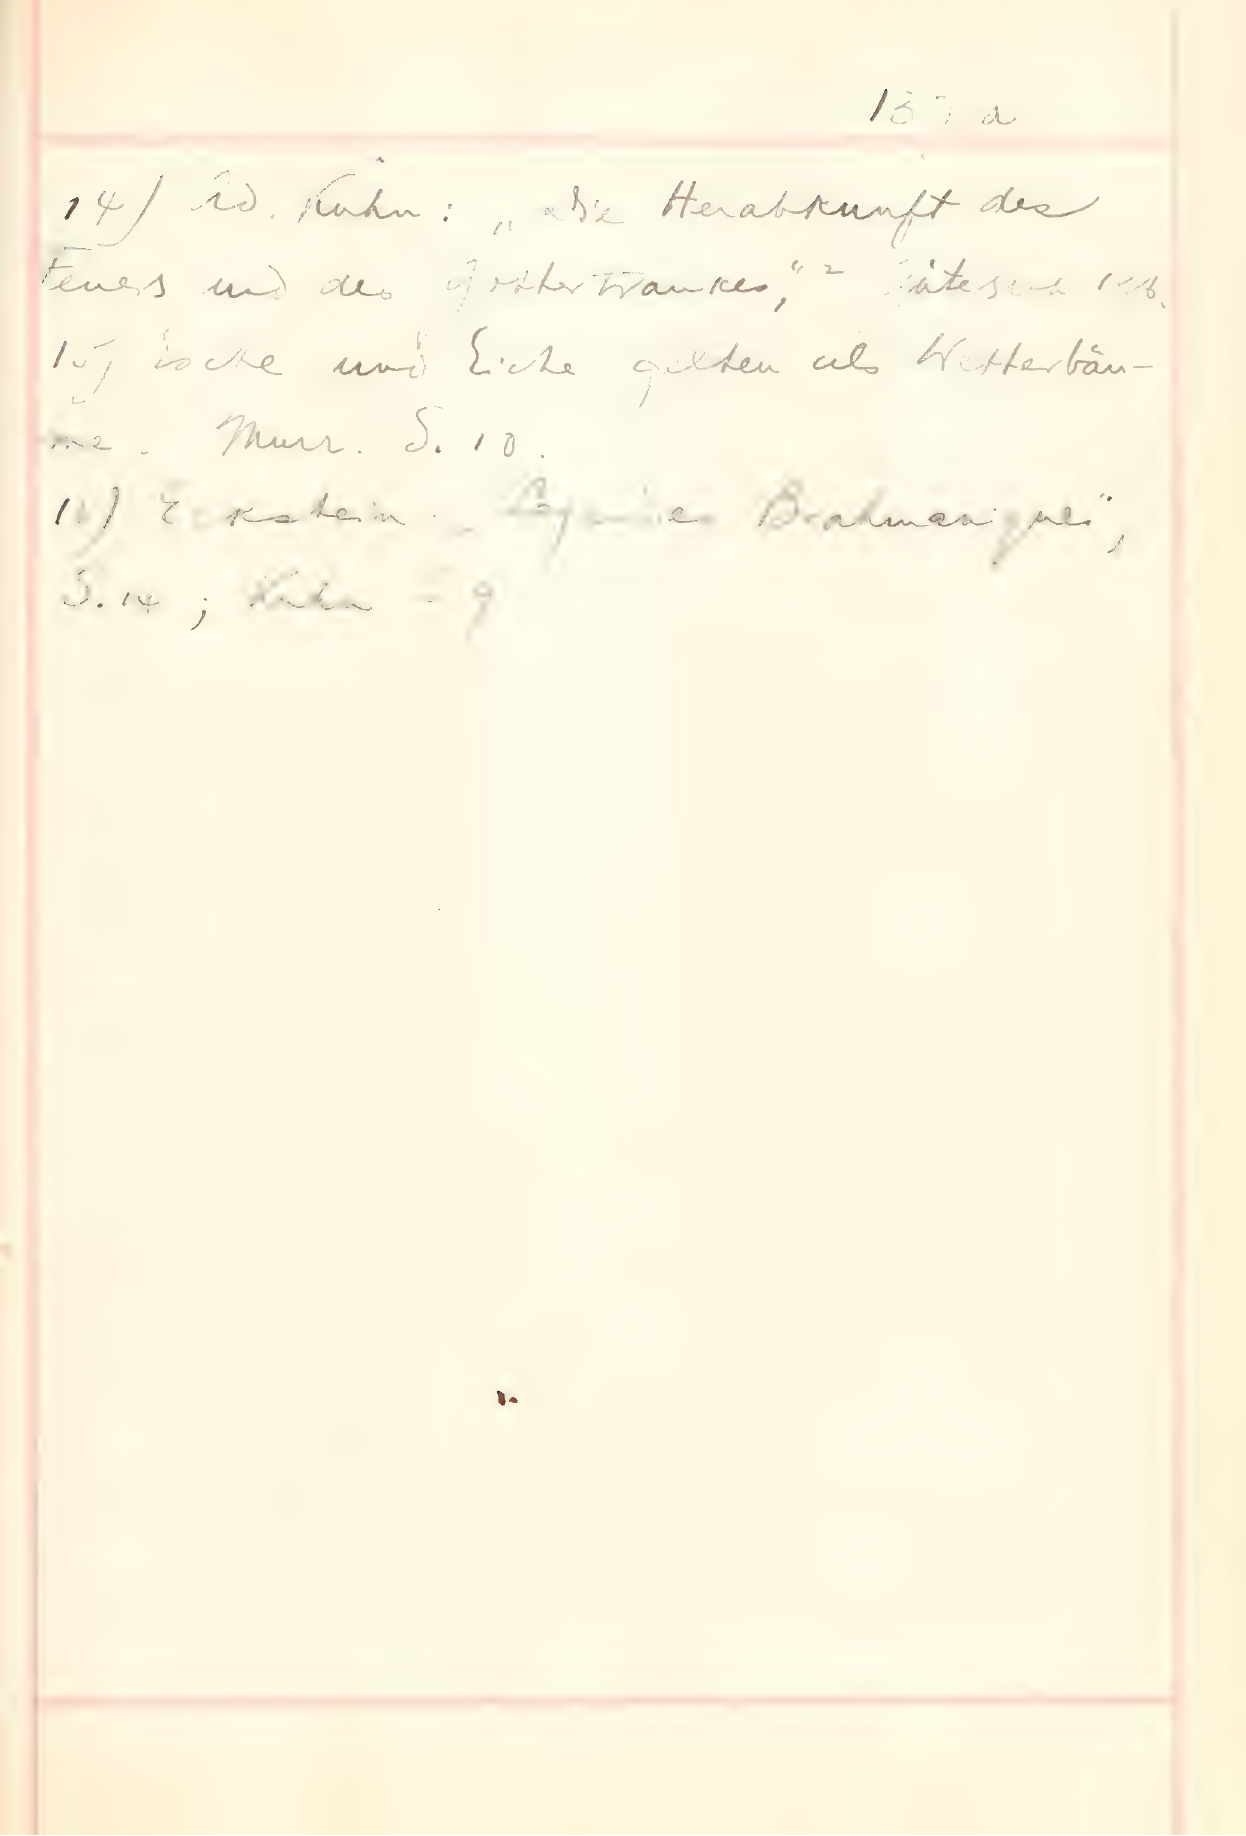 137 a
14) Ad. Kuhn: „Die Herabkunft des
Feuers und des Göttertrankes,"² Gütersloh
15) Esche und Eiche gelten als Wetterbäu-
me. Murr. S. 10.
16) Eckstein „ Brahmaniques",
S. 14; Kuhn